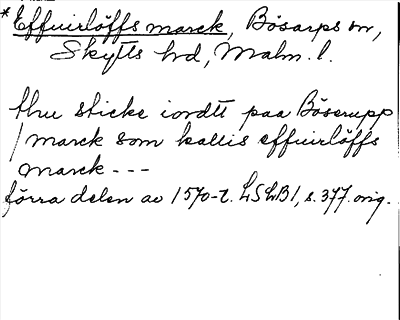 * Effuirlöffs marck, Bösarps sn,
Skytts hd, Malm. l.
thu sticke iordtt paa Böserupp
/ marck som kallis effuirlöffs
marck ---
förra delen av 1570-t. LSLB1, s. 377. orig.